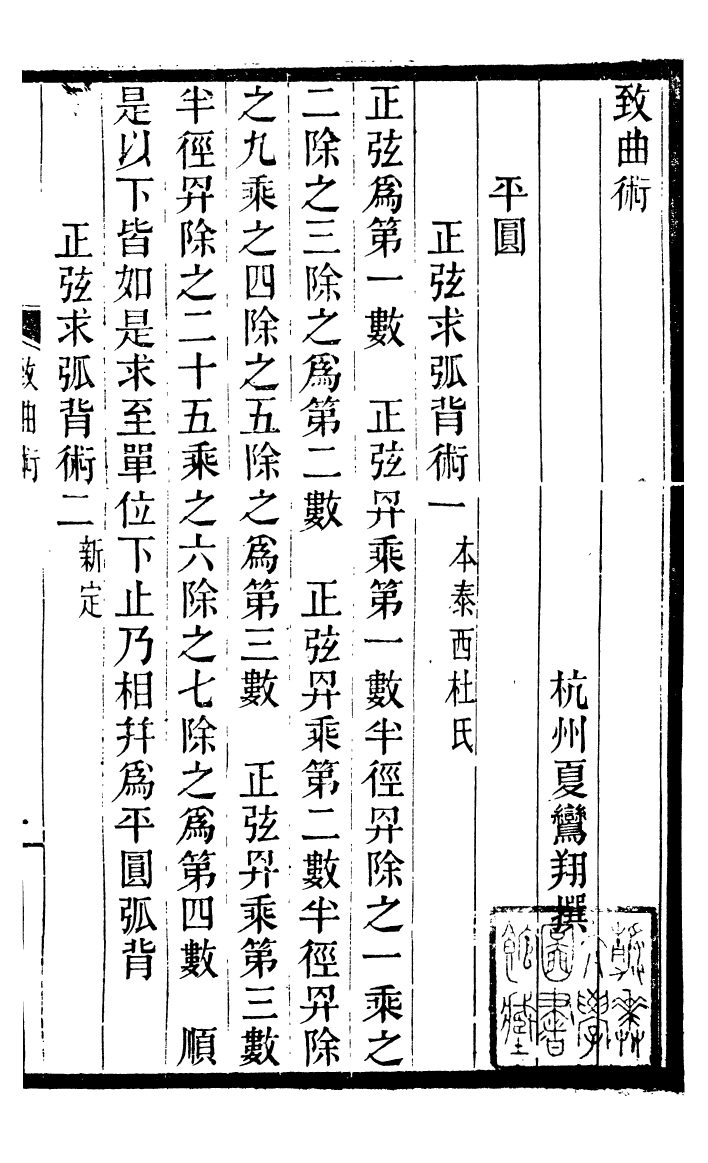 致曲術
杭州夏鸞翔撰
平圓
正弦求弧背術一 本泰西杜氏
正弦爲第一數 正弦昇乘第一數半徑昇除之一乘之
二除之三除之爲第二數 正弦昇乘第二數半徑昇除
之九乘之四除之五除之爲第三數 正弦昇乘第三數
半徑昇除之二十五乘之六除之七除之爲第四數 順
是以下皆如是求至單位下止乃相幷爲平圓弧背
正弦求弧背術二 新定
致曲術
燕京大學圖書館藏